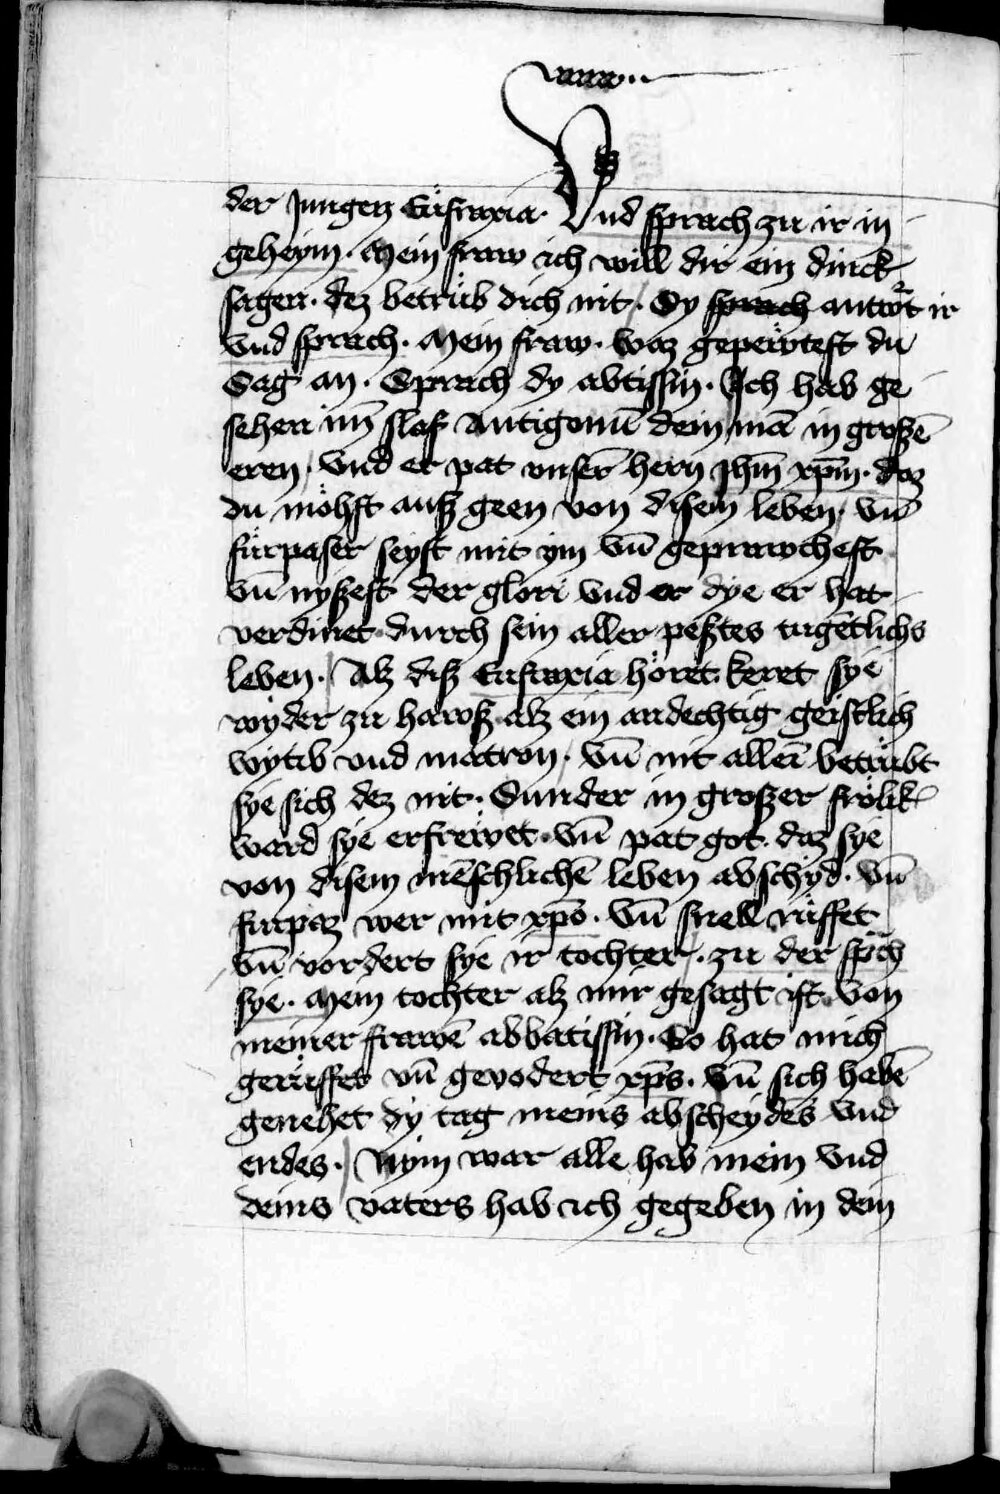 der Jungen Eufraxia. Vnd sprach zu ir in
geheym. Mein fraw ich will dir ein dinck
sagen. dez betrüb dich nit. Sy sprach antwort ir
vnd sprach. Mein fraw. waz gepewtest du
Sag an. Sprach dy abtissin. Ich hab ge
sehen im̄ slaf Antigonū dein mā in großē
eren. vnd er pat vnsern̄ hern Jhm̄ xpm̄. daz
du möhst auß geen von disem leben. vn̄
fürpaser seyst mit ym vn̄ geprawchest
vn̄ nyßest der glori vnd er dye er hat
verdinet durch sein aller peßtes tugētlichs
leben. Alz diß Eufraxia höret. keret sye
wyder zu hawß alz ein andechtig geistlich
wytib vnd matron. vn̄ nit alleī betrübt
sye sich dez nit. Sunder in großer frölik
ward sye erfrewet. vn̄ pat got. daz sye
von disem mēschlichē leben abschyd. vn̄
furpaz wer mit xpō. vn̄ snell rüffet
vn̄ vordert sye ir tochter. zu der sp̄ch
sye. Mein tochter alz mir gesagt ist von
meiner frawē abbatissin. So hat mich
gerüffet vn̄ gevodert xps̄. vn̄ sich habē
genehet dy tag meins abscheydes vnd
endes. Nym war alle hab mein vnd
deins vaters hab ich gegeben in dein